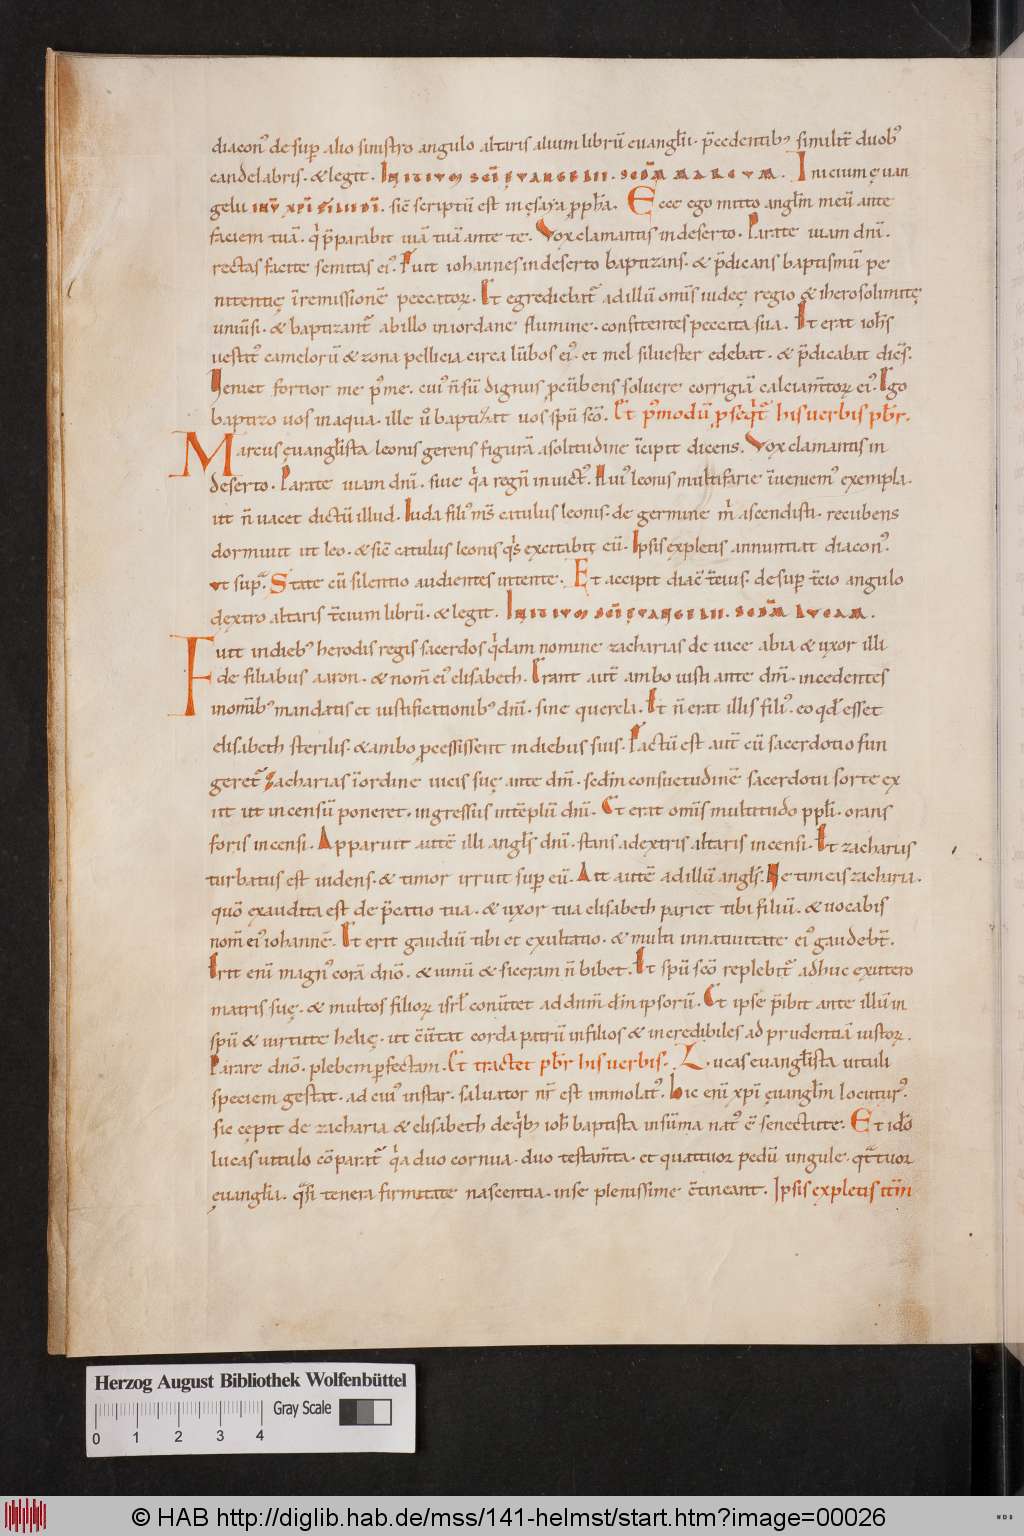 diacon᾽ de sup̱ alio sinistro angulo altaris alium librū euangł̄ii · p̄cedentib᾽ similit̄ duob᾽
candelabris · & legit · INITIVM SC̄I EVANGELII · SCD̄M MARCVM · Iniciumęuan
gelii IHV̄ XPĪ FILII DĪ · sic̄ scriptū est in ęsaya ꝓph̄a · Ecce ego mitto angl̄m meū ante
faciem tuā · qͥ p̄parabit uiā tuā ante te · Vox clamantis in deserto · Parate uiam dn̄i ·
rectas facite semitas ei᾽ · Fuit iohannes in deserto baptizans · & p̄dicans baptismū pe
nitentię īremissionē peccatoꝝ · Et egrediebat᾽ ad illū om̄is iudeę regio & iherosolimitę
uniūsi · & baptizant᾽ ab illo in iordane flumine · confitentes peccata sua · Et erat ioh̄s
uestit᾽ camelorū & zona pellicia circa lūbos ei᾽ · et mel siluester edebat · & p̄dicabat dic̄s ·
Ueniet fortior me p᾽ me · cui᾽ n̄ sū dignus ꝓcūbens soluere corrigiā calciam̄toꝝ ei᾽ · Ego
baptizo uos in aqua · ille ū baptizat uos spū sc̄o · Et p᾽modū ꝓseqͥt᾽ his uerbis pb̄r ·
Marcus ęuangl̄ista leonis gerens figurā a solitudine īcipit dicens · Vox clamantis in
deserto · Parate uiam dn̄i · siue qͥa regn̄ inuict᾽ · Hui᾽ leonis multifarie īueniem᾽ exempla ·
ut n̄ uacet dictū illud · Iuda fili᾽ ms̄ catulus leonis · de germine m̄ ascendisti · recubens
dormiuit ut leo · & sic̄ catulus leonis qͥs excitabit eū · Ipsis expletis annuntiat diacon᾽ ·
ut supͣ · State cū silentio audientes intente · Et accipit diac̄ t̄cius · de sup̱ t̄cio angulo
dextro altaris t̄cium librū · & legit · INITIVM SC̄I EVANGELII · SCD̄M LVCAM ·
Fuit in dieb᾽ herodis regis sacerdos qͥdam nomine zacharias de uice abia & uxor illi
de filiabus aaron · & nom̄ ei᾽ elisabeth · Erant aut̄ ambo iusti ante dm̄ · incedentes
in om̄ib᾽ mandatis et iustificationib᾽ dn̄i · sine querela · Et n̄ erat illis fili᾽ · eo qd̄ esset
elisabeth sterilis · & ambo ꝓcessissent in diebus suis · Factū est aut̄ cū sacerdotio fun
geret᾽ Zacharias īordine uicis suę ante dm̄ · scd̄m consuetudinē sacerdotii sorte ex
iit ut incensū poneret · ingressus in tēplū dn̄i · Et erat om̄is multitudo ppl̄i · orans
foris incensi · Apparuit autē illi angl̄s dn̄i · stans a dextris altaris incensi · Et zacharias
turbatus est uidens · & timor irruit sup̱ eū · Ait autē ad illū angl̄s · Ne timeas zacharia ·
quō exaudita est dep̄catio tua · & uxor tua elisabeth pariet tibi filiū · & uocabis
nom̄ ei᾽ iohannē · Et erit gaudiū tibi et exultatio · & multi in natiuitate ei᾽ gaudebt̄ ·
Erit eni̅ magn᾽ corā dn̄o · & uinū & siceram n̄ bibet · Et spū sc̄o replebit᾽ adhuc ex utero
matris suę · & multos filioꝝ isrl̄ conūtet ad dn̄m dm̄ ipsorū · Et ipse p̄ibit ante illū in
spū & uirtute helię · ut c̄ūtat corda patrū in filios & incredibiles ad prudentiā iustoꝝ ·
Parare dn̄o · plebem ꝑfectam · Et tractet pb̄r his uerbis · Lucas euangl̄ista uituli
speciem gestat · ad cui᾽ instar · saluator nr̄ est immolat᾽ · Hic eni̅ xpī ęuangl̄m locutur᾽ ·
sic cępit de zacharia & elisabeth de qͥb᾽ ioh̄ baptista in sūma nat᾽ ē senectute · Et idō
lucas uitulo cōparat᾽ qͥa duo cornua · duo testam̄ta · et quattuor pedū ungule · qͣttuor
ęuangl̄ia · qͣsi tenera firmitate nascentia · in se plenissime c̄tineant · Ipsis expletis itm̄
Herzog August Bibliothek Wolfenbüttel
Gray Scale
0 1 2 3 4
© HAB http://diglib.hab.de/mss/141-helmst/start.htm?image=00026